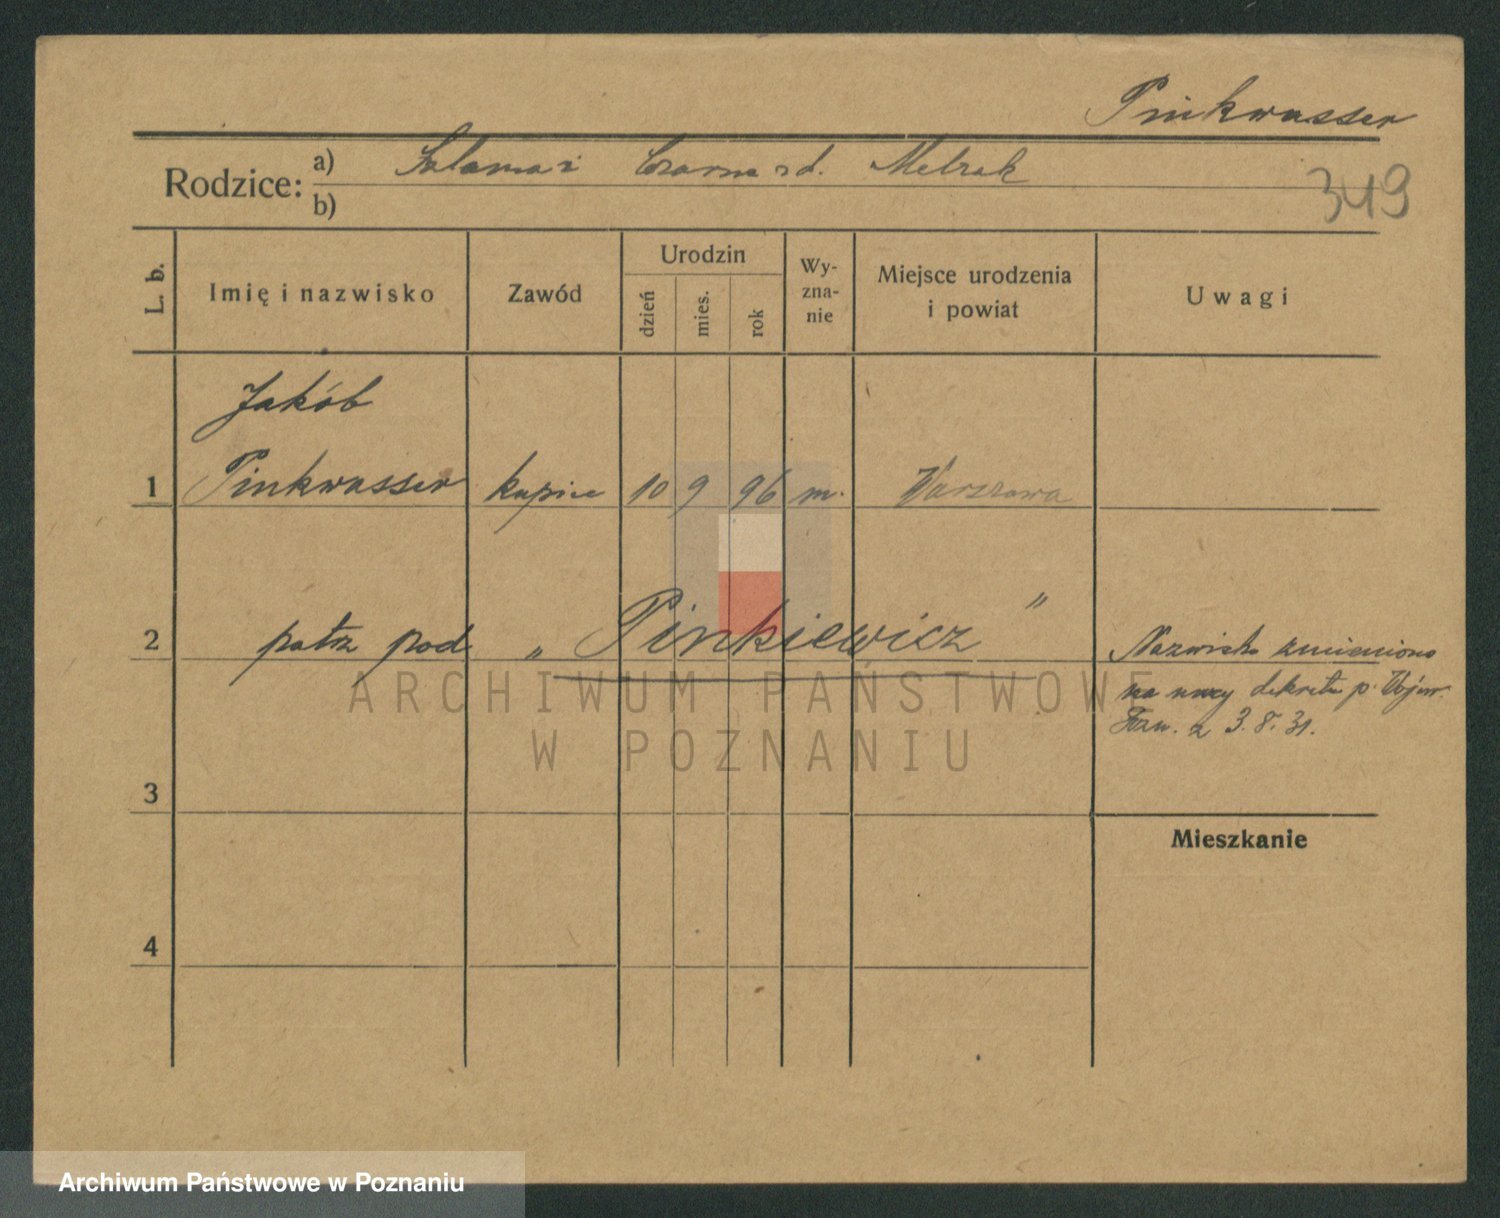 Pinkwasser
Rodzice: a) Salama i Czarna zd. Melzak
b)
349
L. b.
Imię i nazwisko
Zawód
Urodzin
dzień
mies.
rok
Wy-
zna-
nie
Miejsce urodzenia
i powiat
Uwagi
Jakób
1 Pinkwasser kupiec 10 9 96 m. Warszawa
2 patrz pod „Pinkiewicz"
Nazwisko zmieniono
na mocy dekretu p. Wojew.
Pozn. z 3.8.31.
3
Mieszkanie
4
ARCHIWUM PAŃSTWOWE
W POZNANIU
Archiwum Państwowe w Poznaniu